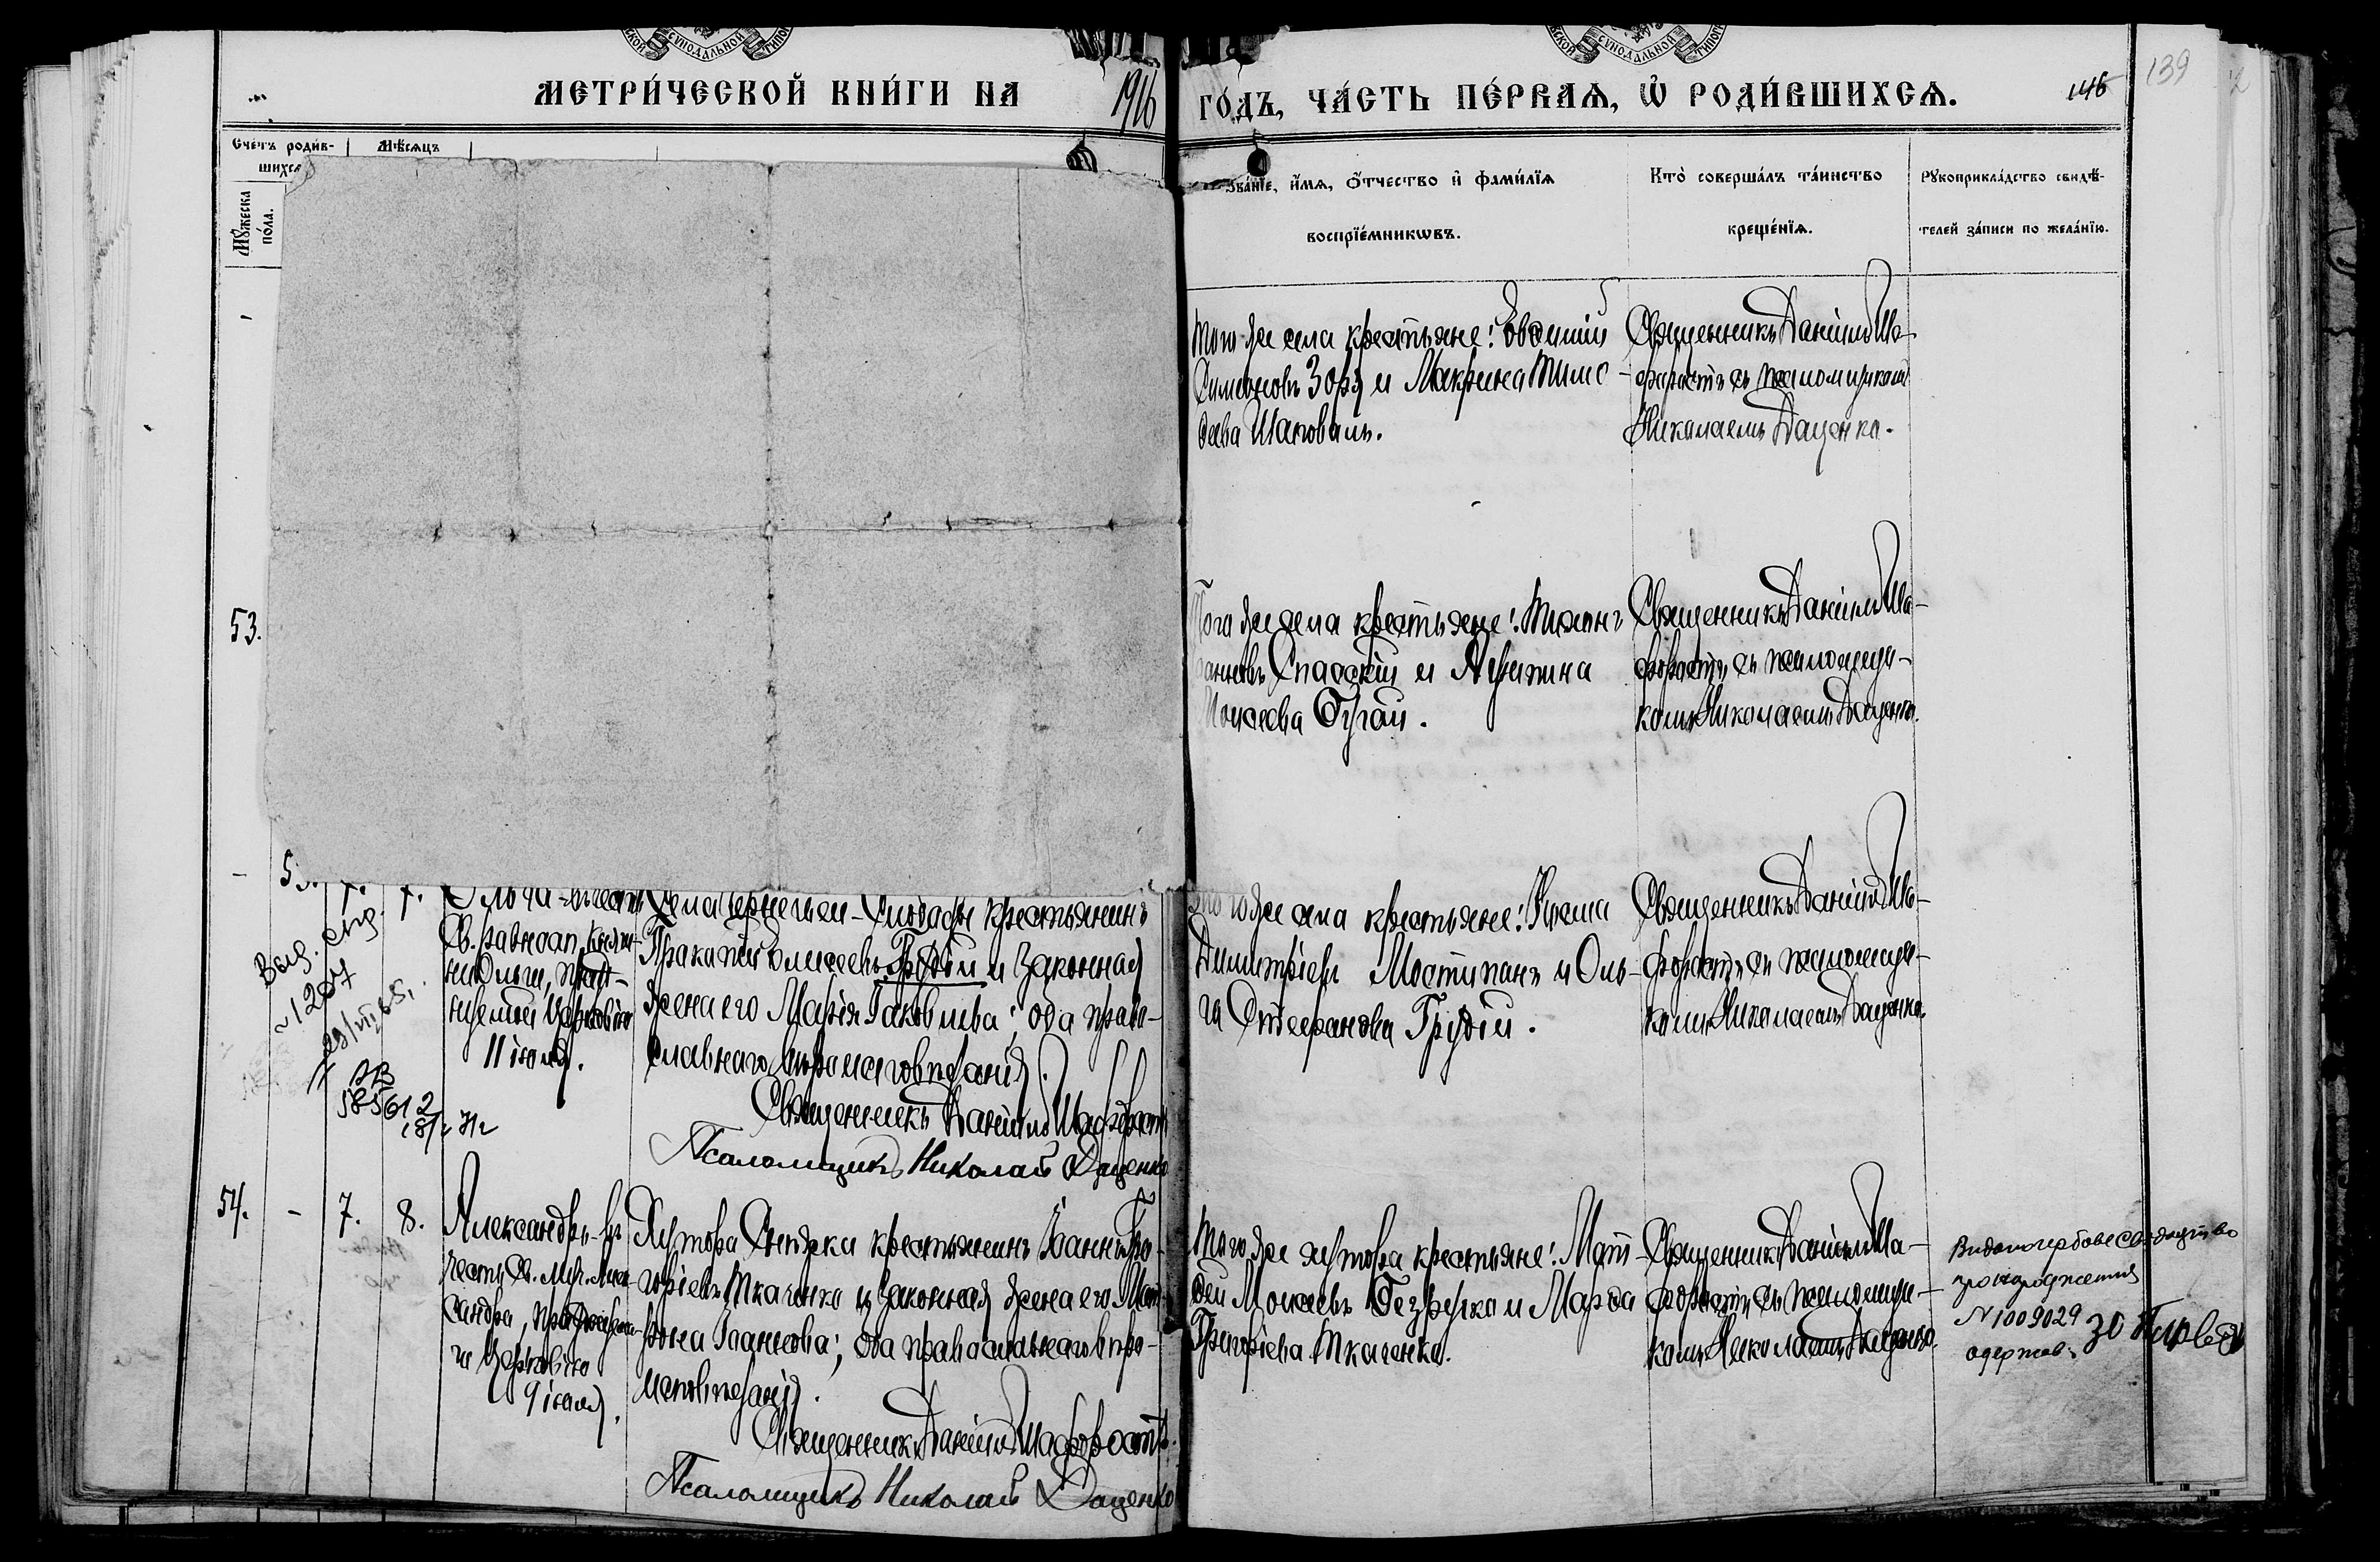 МЕТРИ́ЧЕСКОЙ КНИ́ГИ НА 1916 ГО́ДЪ, ЧА́СТЬ ПЕ́РВАѦ, Ѡ҆ РОДИ́ВШИХСѦ.
146
139
Сче́тъ роди́в-
шихсѧ
Мѣ́сѧцъ
Мꙋ́жеска
по́ла.
Зва́нїе, и҆́мѧ, ѻ҆́тчество и҆ фами́лїѧ
воспрїе́мникѡвъ.
Кто̀ соверша́лъ та́инство
креще́нїѧ.
Рꙋкоприкла́дство свидѣ́-
телей за́писи по жела́нїю.
того же села крестьяне: Евѳимій
Симоновъ Зоря и Макрина Тимо-
ѳеева Шаповалъ.
Священникъ Даніилъ Ша-
форостъ съ псаломщикомъ
Николаемъ Даценко.
53.
Того же села крестьяне: Тихонъ
Спасскій и
Моисеева Бугай.
Священникъ Даніилъ Ша-
форостъ съ псаломщи-
комъ Николаемъ Даценко.
53. 7. 7.
Ольга - въ честь
Св. равноап. княги-
ни Ольги, празд-
нуемой Церковію
11 іюля.
Села Чернечьей-Слободы крестьянинъ
Прокопій Елисеевъ Грудій и законная
жена его Марія Іаковлева; оба право-
славнаго вѣроисповѣданія.
Священникъ Даніилъ Шафоростъ
Псаломщикъ Николай Даценко
того же села крестьяне: Никита
Димитріевъ Мостипанъ и Оль-
га Стефанова Грудій.
Священникъ Даніилъ Ша-
форостъ съ псаломщи-
комъ Николаемъ Даценко.
Выд.
1207
54. - 7. 8.
Александръ - въ
честь Св. муч. Алек-
сандра, празднуема-
го Церковію
9 іюля.
Хутора крестьянинъ Іоаннъ Гри-
горіевъ Ткаченко и законная жена его Мат-
рона Іоаннова; оба православнаго вѣро-
исповѣданія.
Священникъ Даніилъ Шафоростъ.
Псаломщикъ Николай Даценко
Того же хутора крестьяне: Мат-
ѳей Моисеевъ и Марѳа
Григоріева Ткаченко.
Священникъ Даніилъ Ша-
форостъ съ псаломщи-
комъ Николаемъ Даценко.
про народження
N 1009029